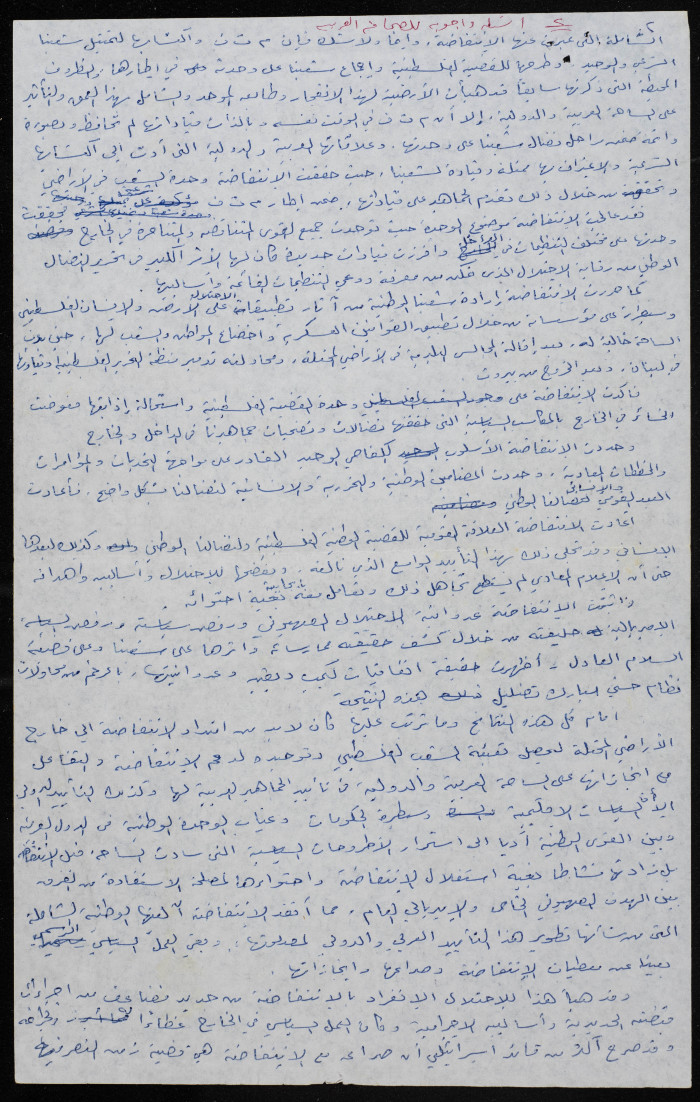 ٢ ع اسئلة واجوبة للصحافة العربية
الشاملة التي عبرت عنها الانتفاضة. وانها ولا شك فإن م ت ف والتفافها لتمثيل شعبنا
الشرعي والوحيد وطرحها للقضية الفلسطينية واجماع شعبنا على وحدته في اطارها والظروف
المحيطة التي ذكرتها سابقاً قد هيأت الأرضية لهذا الانفجار وطابعه الموحد والشامل بهذا العمق والتأثير
على الساحة العربية والدولية، إلا أن م ت ف في الوقت نفسه وبالذات قيادتها لم تحافظ وبصورة
دائمة ضمن مراحل نضال شعبنا على وحدتها، وعلاقاتها العربية والدولية التي أدت الى
الشرعية والاعتراف بها ممثلة وقيادة لشعبنا، حيث حققت الانتفاضة وحدة الشعب في الاراضي
من خلال ذلك وتقدم الجماهير على قياداتها، ضمن اطار م ت ف
فقد عالجت الانتفاضة موضوع الوحدة حيث توحدت جميع القوى المتناقضة والمتناحرة في الخارج
وحدتها على مختلف التنظيمات في الداخل وافرزت قيادات جديدة كان لها الأثر الكبير في تحرير النضال
الوطني من رقابة الاحتلال الذي تمكن من معرفة ووعي التنظيمات القائمة وأساليبها.
كما حررت الانتفاضة ارادة شعبنا الوطنية من آثار تطبيقات الاحتلال على الأرض والانسان الفلسطيني
وسيطرته على مؤسساته من خلال تطبيق القوانين العسكرية واخضاع المواطن والشعب لها، حتى بدت
الساحة خالية له، بعد إقالة المجالس البلدية في الاراضي المحتلة، ومحاولته تدمير منظمة التحرير الفلسطينية وقيادتها
في لبنان، وبعد الخروج من بيروت.
فأكدت الانتفاضة على وحدة الشعب الفلسطيني وحدة القضية الفلسطينية واستحالة إذابتها فعوضت
الخسائر في الخارج بالمكاسب السياسية التي حققتها نضالات وتضحيات جماهيرنا في الداخل والخارج
وحددت الانتفاضة الأسلوب الكفاحي الوحيد القادر على مواجهة التحديات والمؤامرات
والمخططات المعادية، وحددت المضامين الوطنية والتحررية والانسانية لنضالنا بشكل واضح، فأعادت
البعد القومي والإنساني لنضالنا الوطني
اعادت الانتفاضة العلاقة القومية للقضية الوطنية الفلسطينية ولنضالنا الوطني وكذلك بعدها
الانساني وقد تجلى ذلك بهذا التأييد الواسع الذي نالته، وبفضحها للاحتلال وأساليبه واهدافه
حتى أن الإعلام المعادي لم يستطع تجاهل ذلك وتعامل معه بايجابية بغية احتوائه.
أثبتت الانتفاضة عدوانية الاحتلال الصهيوني ورفض سياسته ورفض السياسة
الامبريالية حليفته من خلال كشف حقيقته ممارساته واثرها على شعبنا وعلى قضية
السلام العادل. وأظهرت حقيقة اتفاقيات كامب ديفيد وعدوانيتها، بالرغم من محاولات
نظام حسني مبارك تضليل هذه النتيجة
امام كل هذه النتائج وما ترتب عليها كان لا بد من امتداد الانتفاضة الى خارج
الأراضي المحتلة لتعمل تعبئة الشعب الفلسطيني وتوحيده لدعم الانتفاضة والتفاعل
مع انجازاتها على الساحة العربية والدولية في تأييد الجماهير العربية لها وكذلك التأييد الدولي
إلا أن السياسات الاقليمية وسيطرة الحكومات وغياب الوحدة الوطنية في الدول العربية
وبين القوى الوطنية أديا الى استمرار الأطروحات السياسية التي سادت الساحة قبل الانتفاضة
بل زادتها نشاطا بغية استغلال الانتفاضة واحتوائها لمصلحة الاستفادة من الفرق
بين الهدف الصهيوني الخاص والامبريالي العام، مما أفقد الانتفاضة آليتها الوطنية الشاملة
التي من شأنها تطوير هذا التأييد العربي والدولي لمصلحتها، وبقي العمل السياسي الرسمي
بعيدا عن معطيات الانتفاضة وصداها وانجازاتها.
وقد هيأ هذا للاحتلال الانفراد بالانتفاضة من جديد مضاعف من اجراءات
قبضته الحديدية وأساليبه الاجرامية وكان العمل السياسي في الخارج غطاءً
وقد صرح أكثر من قائد اسرائيلي أن صراعه مع الانتفاضة هي قضية زمن لتصفيتها